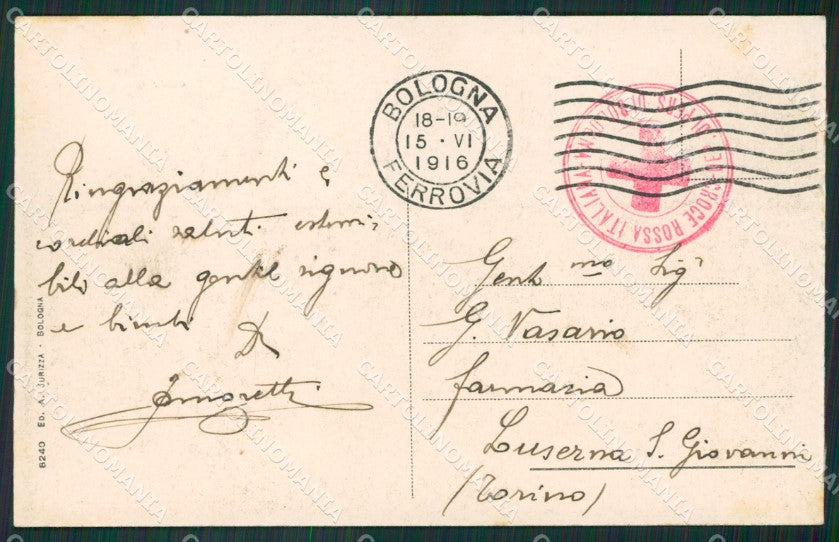 BOLOGNA
18-19
15 · VI
1916
FERROVIA
CROCE ROSSA ITALIANA
Ringraziamenti e
cordiali saluti estensi-
bili alla gentil signora
e bimbi
Dr
Gent mo Sigr
G. Vasario
farmacia
Luserna S. Giovanni
(Torino)
6240 ED. A. JURIZZA - BOLOGNA
CARTOLINOMANIA